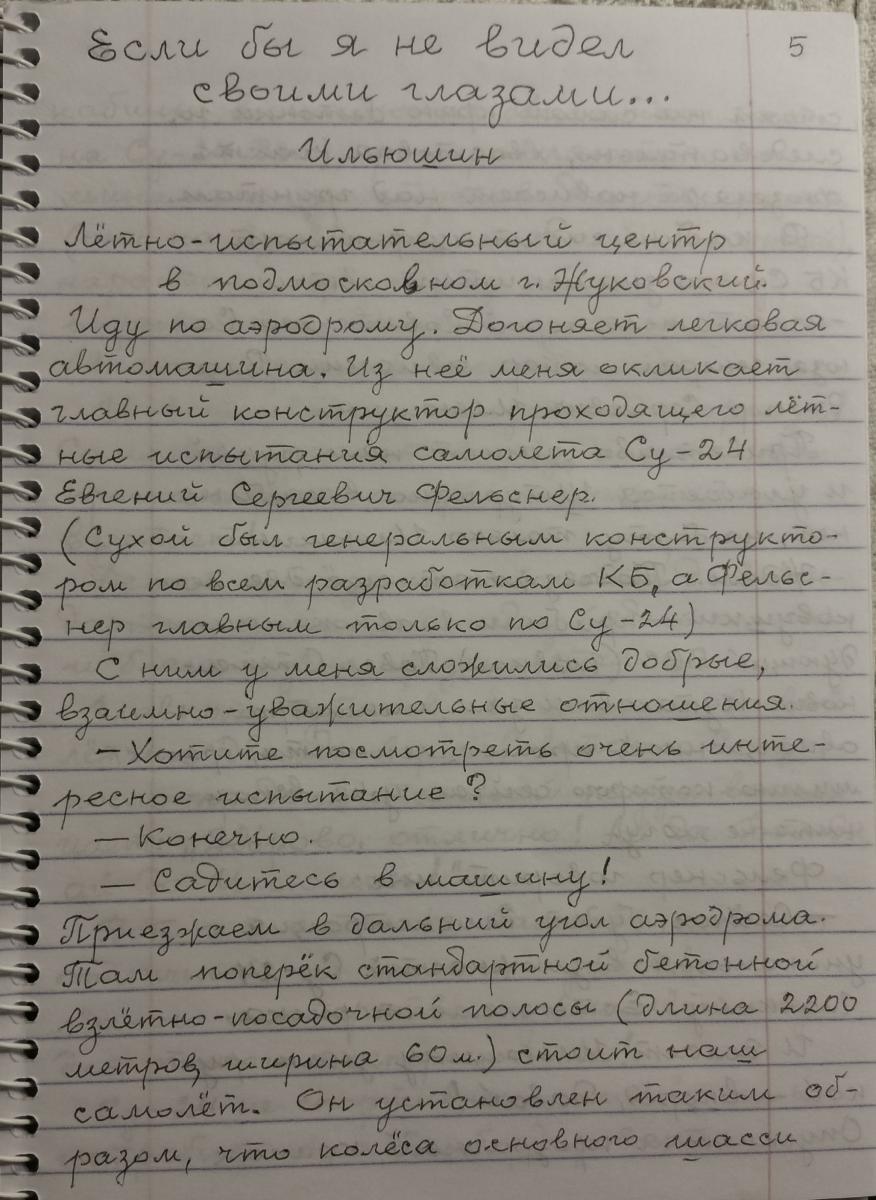 Если бы я не видел 5
своими глазами...
Ильюшин
Лётно-испытательный центр
в подмосковном г. Жуковский.
Иду по аэродрому. Догоняет легковая
автомашина. Из неё меня окликает
главный конструктор проходящего лёт-
ные испытания самолета Су-24
Евгений Сергеевич Фельснер.
(Сухой был генеральным конструкто-
ром по всем разработкам КБ, а Фельс-
нер главным только по Су-24)
С ним у меня сложились добрые,
взаимно-уважительные отношения.
- Хотите посмотреть очень инте-
ресное испытание?
- Конечно.
- Садитесь в машину!
Приезжаем в дальний угол аэродрома.
Там поперёк стандартной бетонной
взлётно-посадочной полосы (длина 2200
метров, ширина 60 м.) стоит наш
самолёт. Он установлен таким об-
разом, что колёса основного шасси